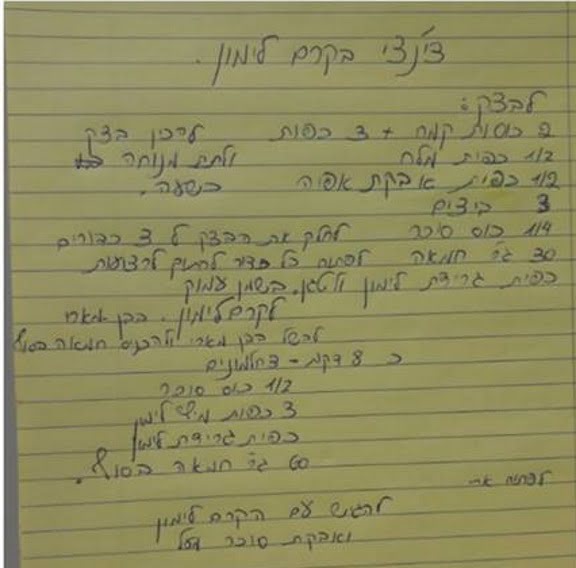 צ'נצי בקרם לימון.
לבצק:
2 כוסות קמח + 3 כפות להכין בצק
1/2 כפית מלח ולתת מנוחה
1/2 כפית אבקת אפיה כשעה.
3 ביצים
1/4 כוס סוכר לחלק את הבצק ל 3 כדורים
30 גר' חמאה לפתוח כל כדור לחתוך לרצועות
כפית גרידת לימון ולטגן. בשמן עמוק
לקרם לימון. בבן מארי
לבשל בבן מארי ולהכניס חמאה בסוף
כ 8 דקות - 3 חלמונים
1/2 כוס סוכר
3 כפות מיץ לימון
כפית גרידת לימון
60 גר' חמאה בסוף.
לפתוח
להגיש עם הקרם לימון
ואבקת סוכר מעל